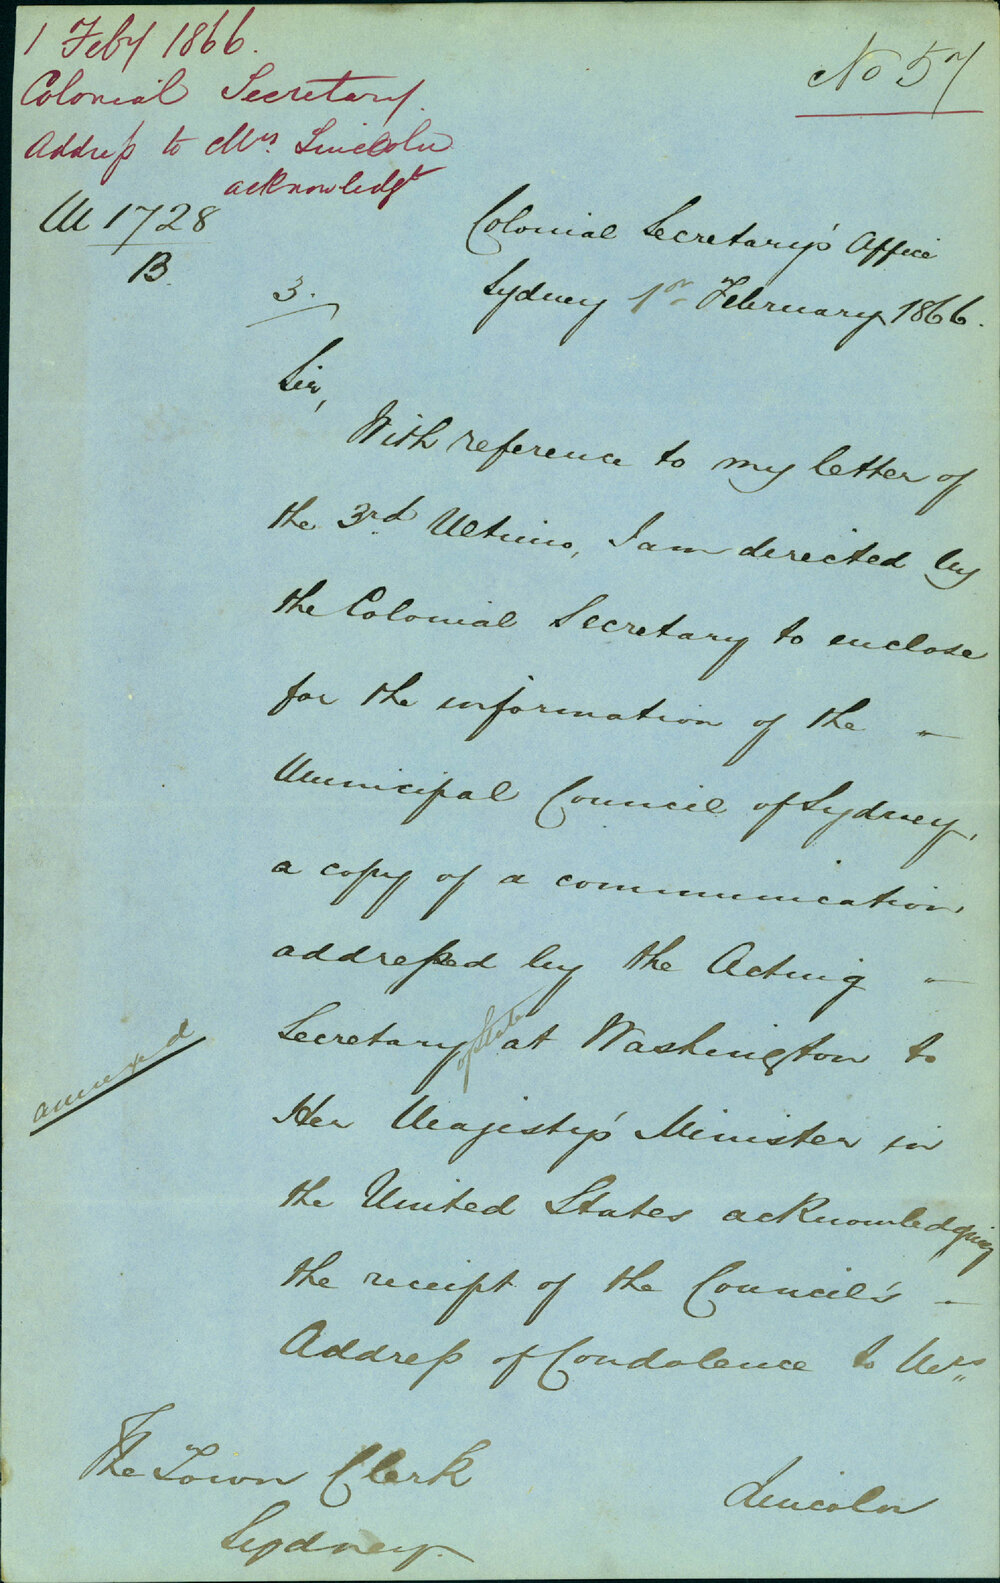 1 Feby 1866.
Colonial Secretary.
Address to Mrs. Lincoln
acknowledgt
No 57
M 1728
B.
3.
Colonial Secretary's Office
Sydney 1st February 1866.
Sir,
With reference to my letter of
the 3rd Ultimo, I am directed by
the Colonial Secretary to enclose
for the information of the -
Municipal Council of Sydney,
a copy of a communication,
addressed by the Acting -
Secretary of State at Washington to
Her Majesty's Minister in
the United States acknowledging
the receipt of the Council's -
Address of Condolence to Mrs
Lincoln
annexed
The Town Clerk
Sydney.